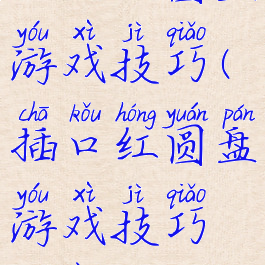 yóu xì jì qiǎo
游戏技巧(
chā kǒu hóng yuán pán
插口红圆盘
yóu xì jì qiǎo
游戏技巧